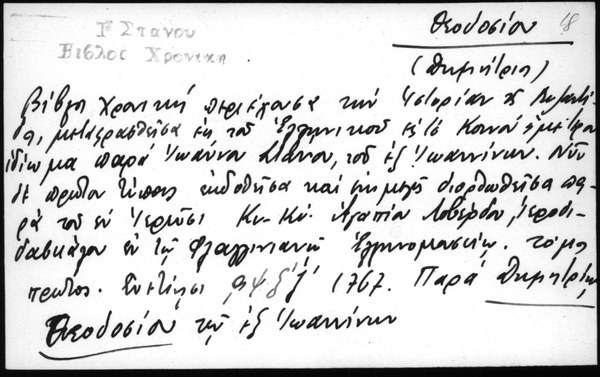 Θεοδοσίου 48
Γ Στανου
Βιβλος Χρονικη
(Δημητρίου)
Βίβλος Χρονική περιέχουσα την Ιστορίαν της Βυζαντί-
δος, μεταφρασθείσα εκ του Ελληνικού εις το Κοινόν ημέτερον
ιδίωμα παρά Ιωάννου Στάνου, του εξ Ιωαννίνων. Νυν
δε πρώτον τύποις εκδοθείσα και επιμελώς διορθωθείσα πα-
ρά του εν Ιερεύσι Κυ-Κυ. Αγαπίου Λοβέρδου, Ιεροδι-
δασκάλου εν τω Φλαγγινιανώ Ελληνομουσείω. τόμος
πρώτος. Ενετίησι αψξζ' 1767. Παρά Δημητρίω
Θεοδοσίου τω εξ Ιωαννίνων